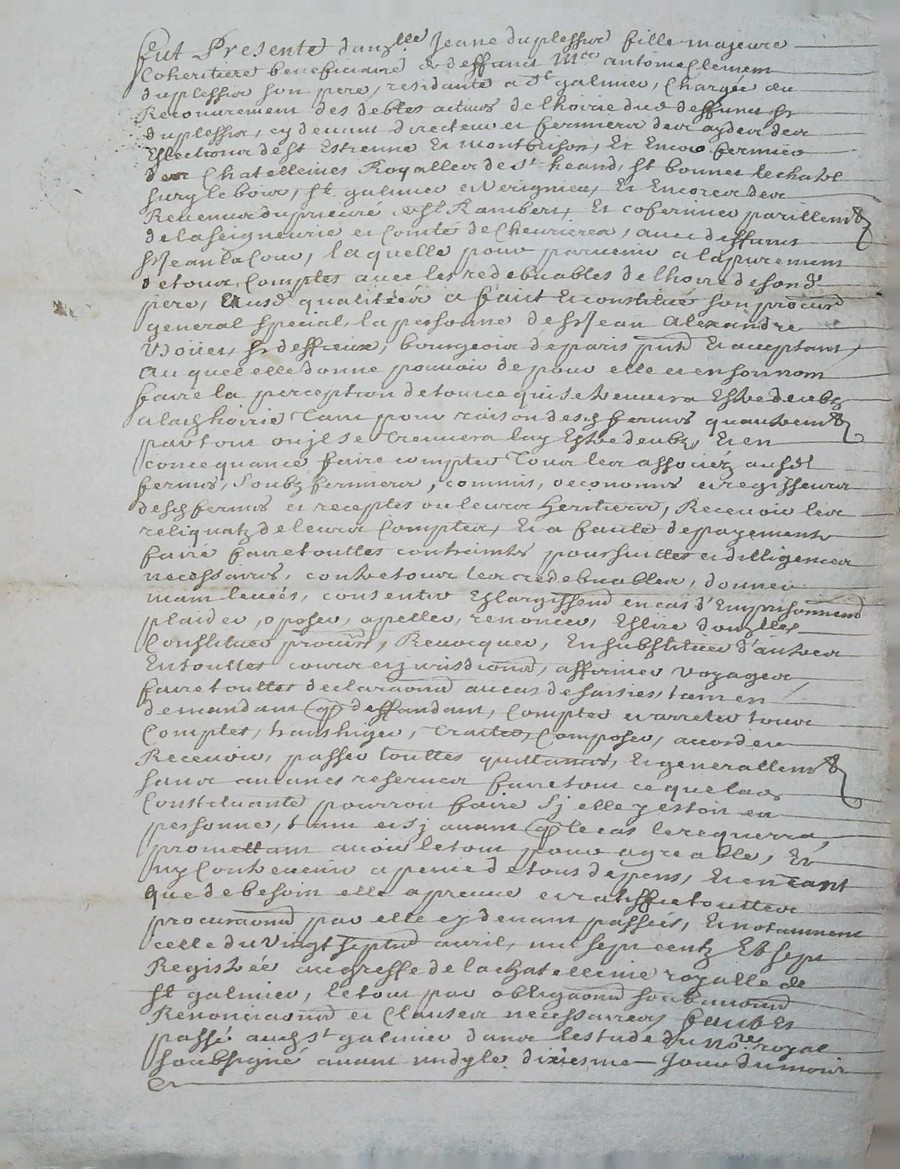 fut Presente dam.lle Jeane duplessier fille majeure
Coheritiere beneficiaire de deffunct Mre antoine clement
duplessier son pere, residante a st galmier, Chargée du
Recouvrement des debtes actives de lhoirie dud deffunct sr
duplessier, cy devant directeur et fermier des aydes des
Ellections de st Estienne Et montbrison, Et Encor fermier
des Chatelleinies Royalles de st heand, st bonnet lechatel
sury le bois, st galmier et Verignieu, Et Encores des
Revenus du prieuré de st Rambert, Et cofermier parillement
de la seigneurie et Comté de Chevrieres, avec deffunct
sr Jean la Cour, la quelle pour parvenir a lapurement
de tous Comptes avec les redebvables de lhoirie de sond
pere, Ausd qualitées a fait Et constitué son procur
general special, la personne de sr Jean Alexandre
sr deffieux, bourgeois de paris pnt Et acceptant,
au quel elle donne pouvoir de pour elle et en son nom
faire la perception de tout ce qui se trouvera Estre deubz
a lad hoirie tant pour raison desd fermes quautrement
par tout ou il se trouvera luy Estre deubz, Et en
concequance faire compter tous les associéz ausd
fermes, soubz fermiers, commis, oeconomes et regisseurs
desd fermes et receptes ou leurs heritiers, Recevoir les
reliquatz de leurs Comptes, Et a faute de payements
faire faire touttes contraintes poursuittes et dilligences
necessaires, contre tous les redebvables, donner
main levées, consentir Eslargissemt en cas d'Emprisonnemt
plaider, oposer, apeller, renoncer, Eslire domicilles
Constituer procurs, Revocquer, En substituer d'autres
En touttes cours et jurisdions, affirmer voyages,
faire touttes declaraons au cas de saisies, tant en
demandant que deffandant, Compter et arreter tous
Comptes, transiger, traiter, Composer, accorder
Recevoir, passer touttes quittances, Et generallemt
sans aucunes reserves faire tout ce que lad
Constituante pourroit faire sy elle y estoit en
personne, tant et sy avant que le cas le requerra,
promettant avoir le tout pour agreable, Et
ny Contrevenir a peine de tous depens, Et en tant
que de besoin elle apreuve et ratiffie touttes
procuraons par elle cy devant passées, Et notamment
celle du vingt septie avril, mil sept centz Et sept
Registrée au greffe de la chatellenie royalle de
st galmier, le tout par obligaons soubmons
Renonciaons et Clauses necessaires, fait Et
passé aud st galmier dans lestude du Nore royal
soubsigné avant midy le dixiesme Jour du mois